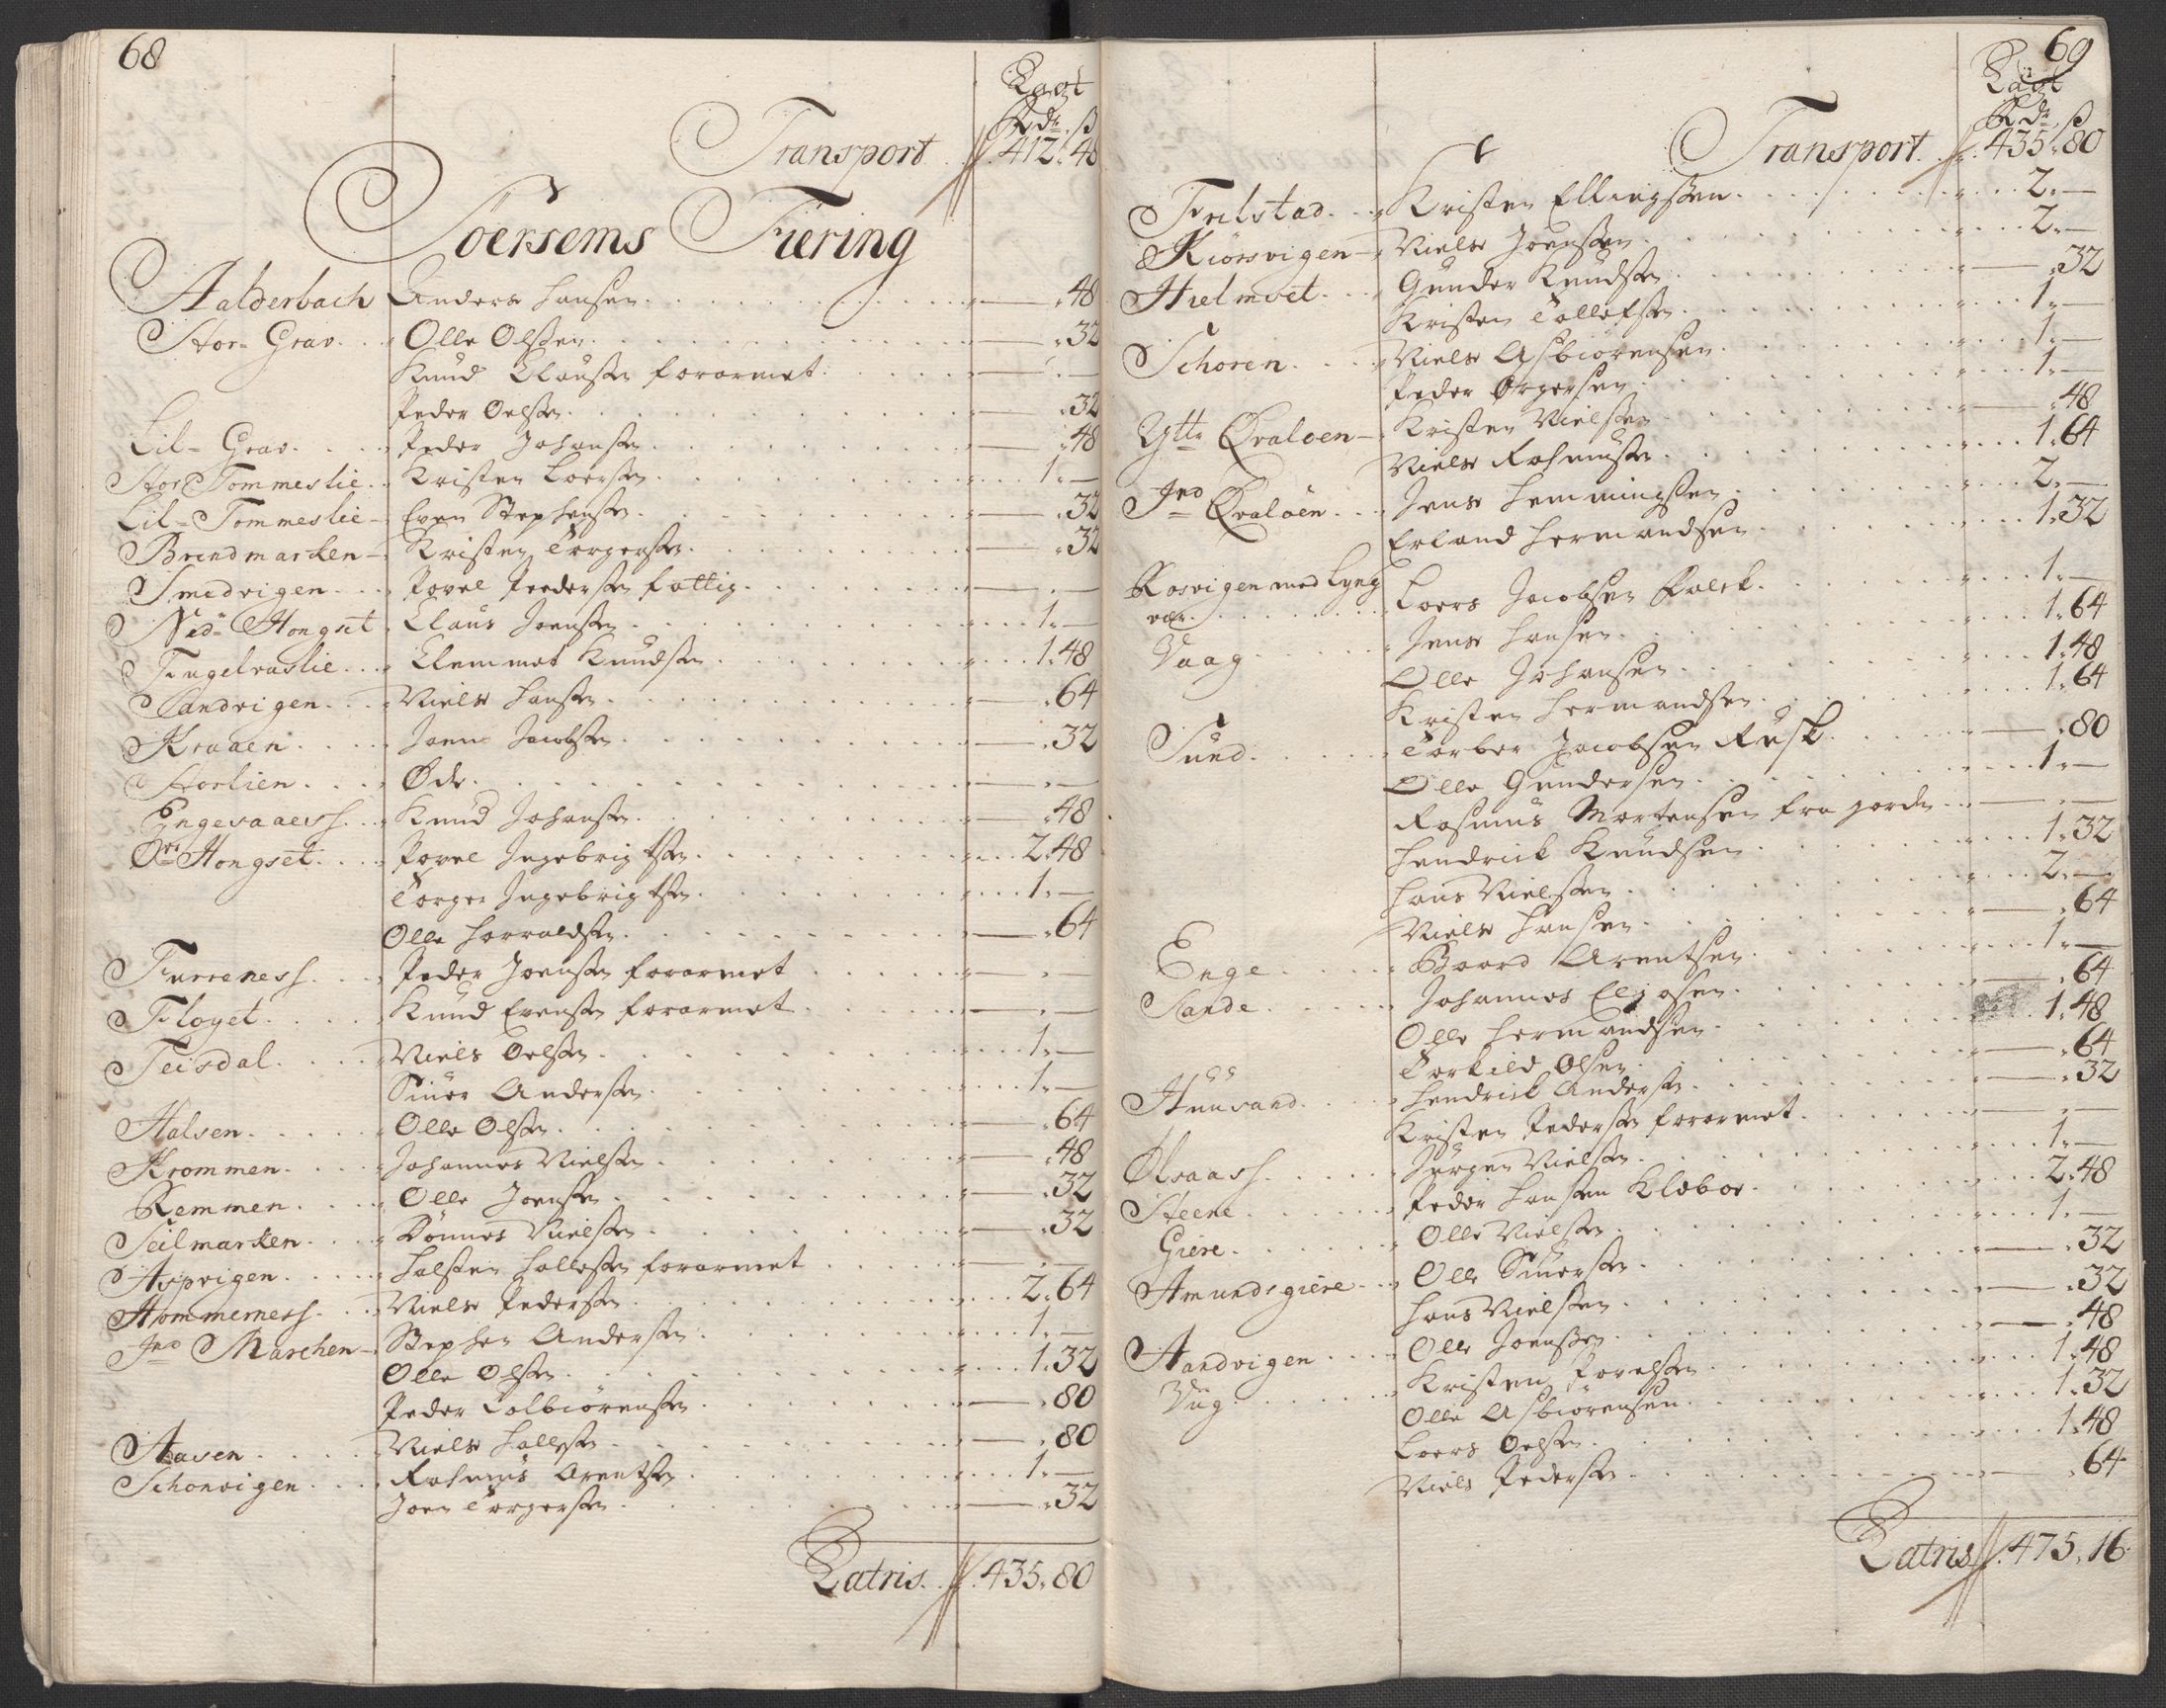 68
Lagt
Rdr. ß
Transport 412.48
Soersems Fiering
Aalderbach Anders Hansen 48
Stor- Grav Olle Olsen 32
Knud Clausen forarmet
Peder Oelsen 32
Lil- Grav Peder Johansen 48
Stor Tommeslie Kristen Loersen 1.—
Lil- Tommeslie Even Stephensen 32
Brendmarken Kristen Torgersen 32
Smedvigen Povel Peedersen fattig
Ned- Hongset Claus Joensen 1.—
Fugelvaslie Clemmet Knudsen 1.48
Sandvigen Niels Hansen 64
Kraaen Joen Jacobsen 32
Storlien Øde
Engesaaess Knud Johansen 48
Øvr Hongset Povel Ingebrigtsen 2.48
Torger Ingebrigtsen 1.—
Olle Harvaldsen 64
Furreness Peder Joensen forarmet
Floyet Knud Evensen forarmet
Teisdal Niels Oelsen 1.—
Siuer Andersen 1.—
Halsen Olle Olsen 64
Krommen Johannes Nielsen 48
Remmen Olle Joensen 32
Seilmarken Tønnes Nielsen 32
Aspvigen Halsten Hallesen forarmet
Hommerness Niels Pedersen 2.64
Ind Marchen Stephen Andersen 1.—
Olle Olsen 1.32
Peder Tolbiørensen 80
Aaven Niels Hallesen 80
Schonvigen Rasmus Arentsen 1.—
Joen Torgersen 32
Latris 435.80
69
Lagt
Rdr. ß
Transport 435.80
Frelstad Kristen Ellingsen 2.—
Kiørsvigen Niels Joensen 2.—
Hielmset Gunder Knudsen 32
Kristen Tollefsen 1.—
Schoren Niels Asbiørensen 1.—
Peder Ørgersen 1.—
Yttr Qvaloen Kristen Nielsen 48
Niels Rasmusen 1.64
Ind Qvaloen Jens Hemmingsen 2.—
Erland Hermandsen 1.32
Rosvigen med Lyng
vær Loers Jacobsen Falck 1.—
Vaag Jens Hansen 1.64
Olle Johansen 1.48
Kristen Hermandsen 1.64
Sund Torber Jacobsen Rusk 80
Olle Gundersen 1.—
Rasmus Mortensen fra gorden
Hendrick Knudsen 1.32
Hans Nielsen 2.—
Niels Hansen 64
Enge Baard Arentsen 1.—
Sande Johannes Eliasen 64
Olle Hermandsen 1.48
Torkild Olsen 64
Huusand Hendrick Andersen 32
Kristen Pedersen forarmet
Olsaass Jørgen Nielsen 1.—
Steene Peder Hansen Klæboe 2.48
Giere Olle Nielsen 1.—
Amundsgiere Olle Siuersen 32
Hans Nielsen 32
Aandvigen Olle Joensen 48
Vug Kristen Povelsen 1.48
Olle Asbiørensen 1.32
Loers Oelsen 1.48
Niels Pedersen 64
Latris 475.16